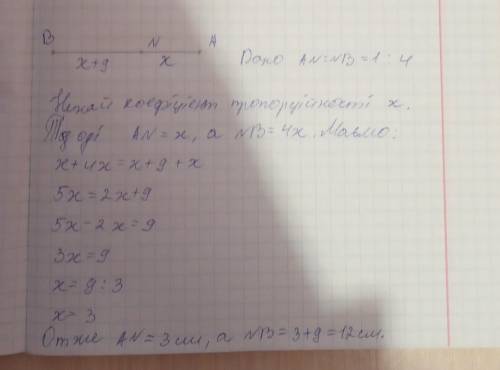 B N A
x+9 x Дано AN:NB=1:4
Нехай коефіцієнт пропорційності x.
Тоді AN=x, а NB=4x. Маємо:
x+4x=x+9+x
5x=2x+9
5x-2x=9
3x=9
x=9:3
x=3
Отже AN=3см, а NB=3+9=12см.